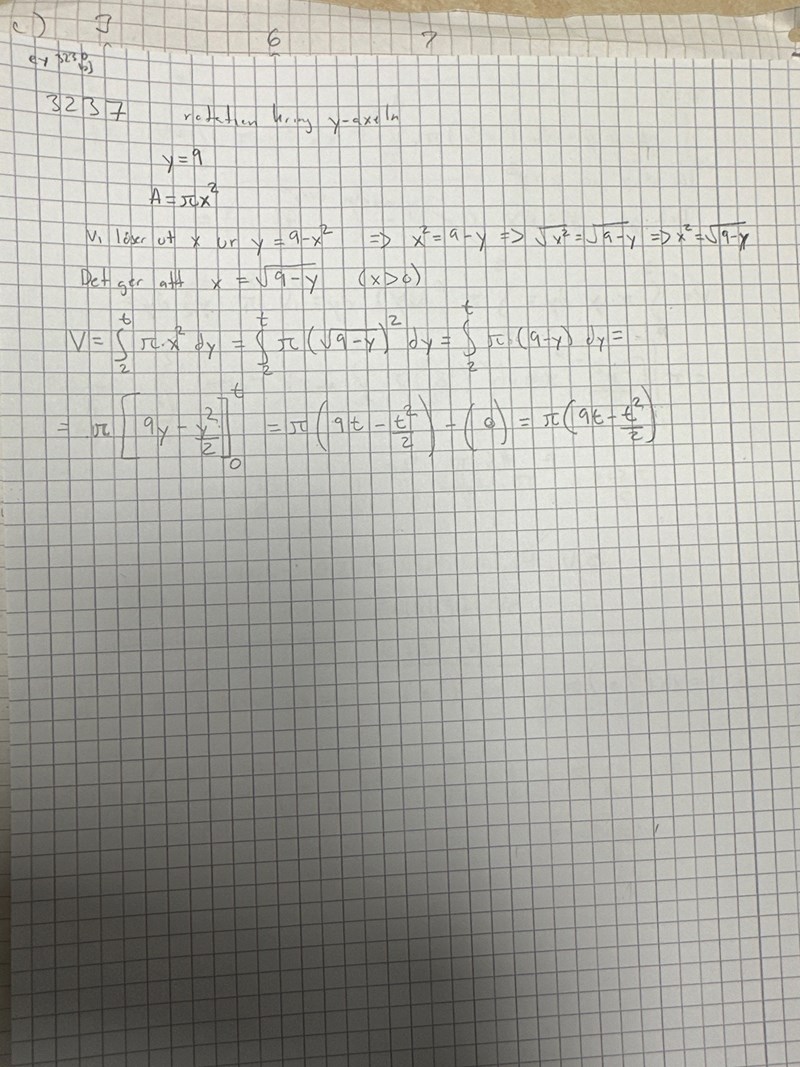 c) 3 6 7
ex 323
b)
3237 rotation kring y-axeln
y=9
A=πx²
Vi löser ut x ur y=9-x² => x²=9-y => √x²=√9-y => x²=√9-y
Det ger att x=√9-y (x>0)
V=∫₂ᵗ π·x² dy = ∫₂ᵗ π(√9-y)² dy = ∫₂ᵗ π·(9-y) dy=
= π[9y-y²/2]₀ᵗ = π(9t-t²/2)-(0) = π(9t-t²/2)